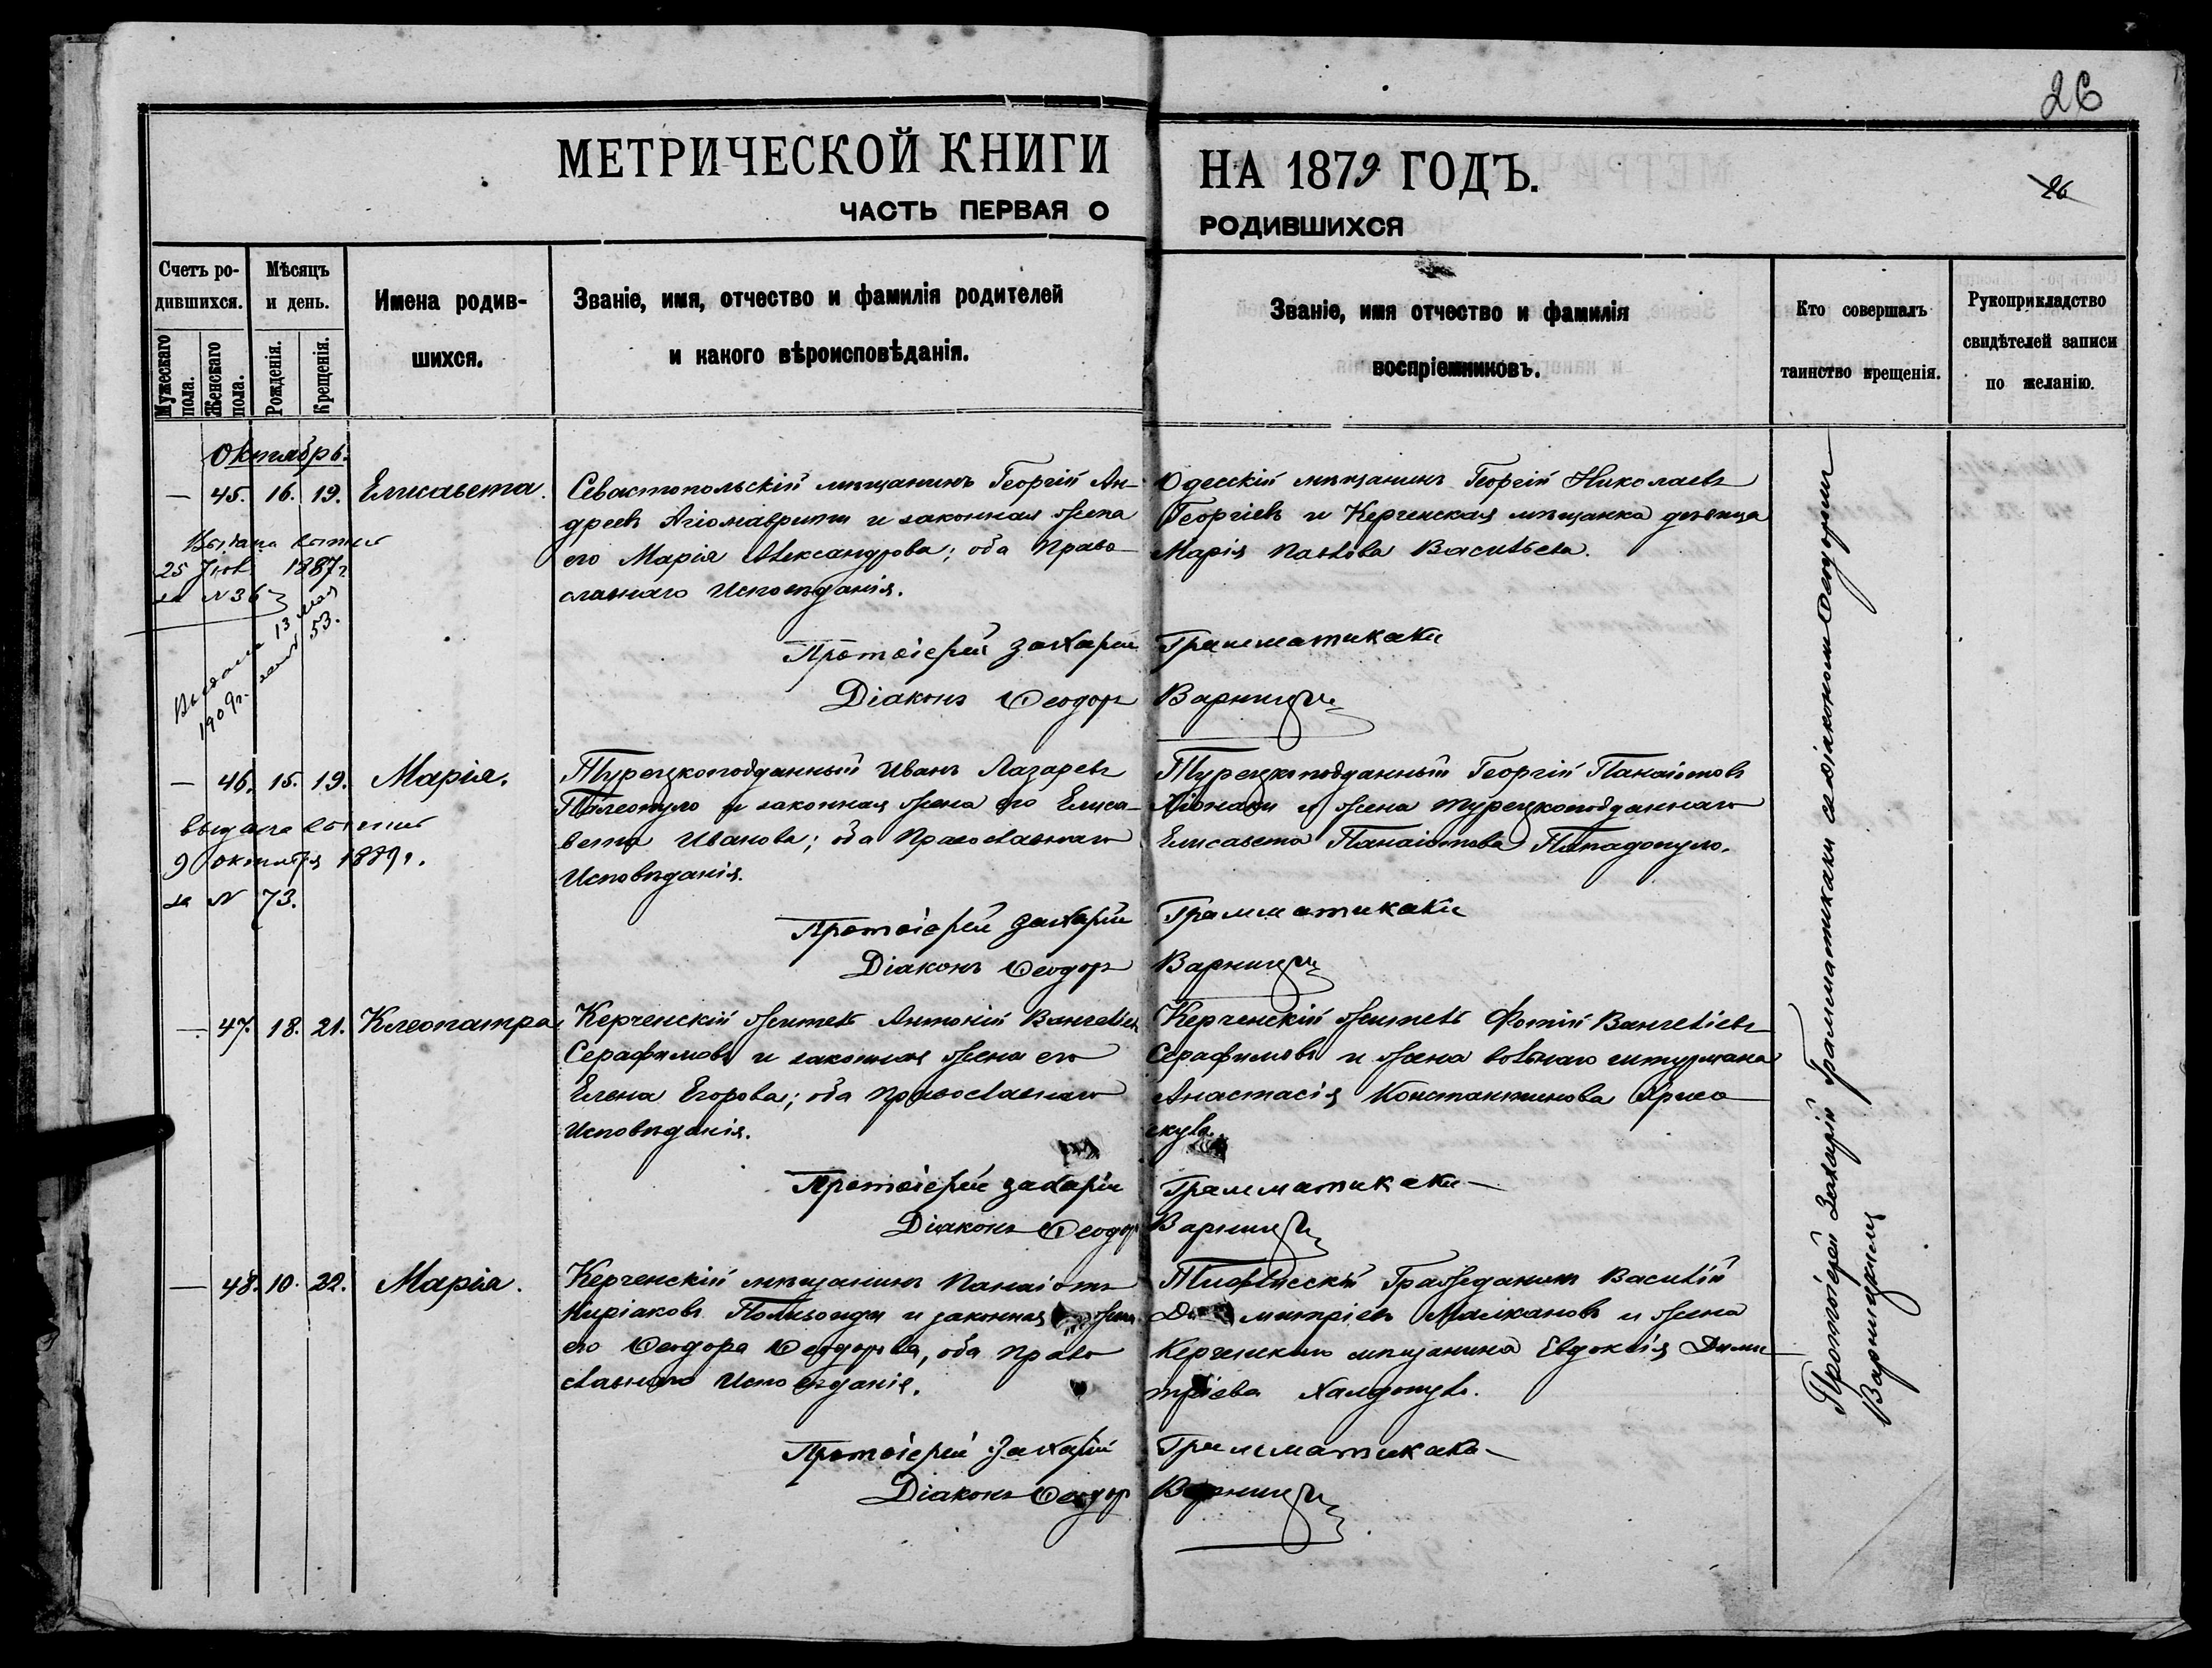 26
МЕТРИЧЕСКОЙ КНИГИ НА 1879 ГОДЪ.
26
ЧАСТЬ ПЕРВАЯ О РОДИВШИХСЯ
Счетъ ро-
дившихся.
Мужескаго пола.
Женскаго пола.
Мѣсяцъ
и день.
Рожденія.
Крещенія.
Имена родив-
шихся.
Званіе, имя, отчество и фамилія родителей
и какого вѣроисповѣданія.
Званіе, имя отчество и фамилія
воспріемниковъ.
Кто совершалъ
таинство крещенія.
Рукоприкладство
свидѣтелей записи
по желанію.
Октябрь.
— 45. 16. 19. Елисавета.
Севастопольскій мѣщанинъ Георгій Ан-
дреевъ Агіомавритъ и законная жена
его Марія Александрова; оба Право-
славнаго Исповѣданія.
Одесскій мѣщанинъ Георгій Николаевъ
Георгіевъ и Керченская мѣщанка дѣвица
Марія Павлова Васильева.
Выдана
25 1887г
за N 36
Выдана 13 мая
1909г. 53.
Протоіерей Захарій Грамматикаки
Діаконъ Ѳеодоръ Варницкій
— 46. 15. 19. Марія.
Турецкоподданный Иванъ Лазаревъ
Палеопуло и законная жена его Елиса-
вета Иванова; оба Православнаго
Исповѣданія.
Турецкоподданный Георгій Панаіотовъ
и жена турецкоподданнаго
Елисавета Панаіотова Пападопуло.
выдана
9 октября 1889г.
за N 73.
Протоіерей Захарій Грамматикаки
Діаконъ Ѳеодоръ Варницкій
— 47. 18. 21. Клеопатра
Керченскій житель Антоній Вангеліевъ
Серафимовъ и законная жена его
Елена Егорова; оба Православнаго
Исповѣданія.
Керченскій житель Фотій Вангеліевъ
Серафимовъ и жена вольнаго штурмана
Анастасія Константинова
Протоіерей Захарій Грамматикаки
Діаконъ Ѳеодоръ Варницкій
— 48. 10. 22. Марія.
Керченскій мѣщанинъ Панаіотъ
Киріаковъ и законная жена
его Ѳеодора Ѳеодорова, оба Право
славнаго Исповѣданія.
Тифлисскій Гражданинъ Василій
Димитріевъ и жена
Керченскаго мѣщанина Евдокія Дими-
тріева
Протоіерей Захарій Грамматикаки
Діаконъ Ѳеодоръ Варницкій
Протоіерей Захарій Грамматикаки съ діакономъ Ѳеодоромъ
Варницкимъ